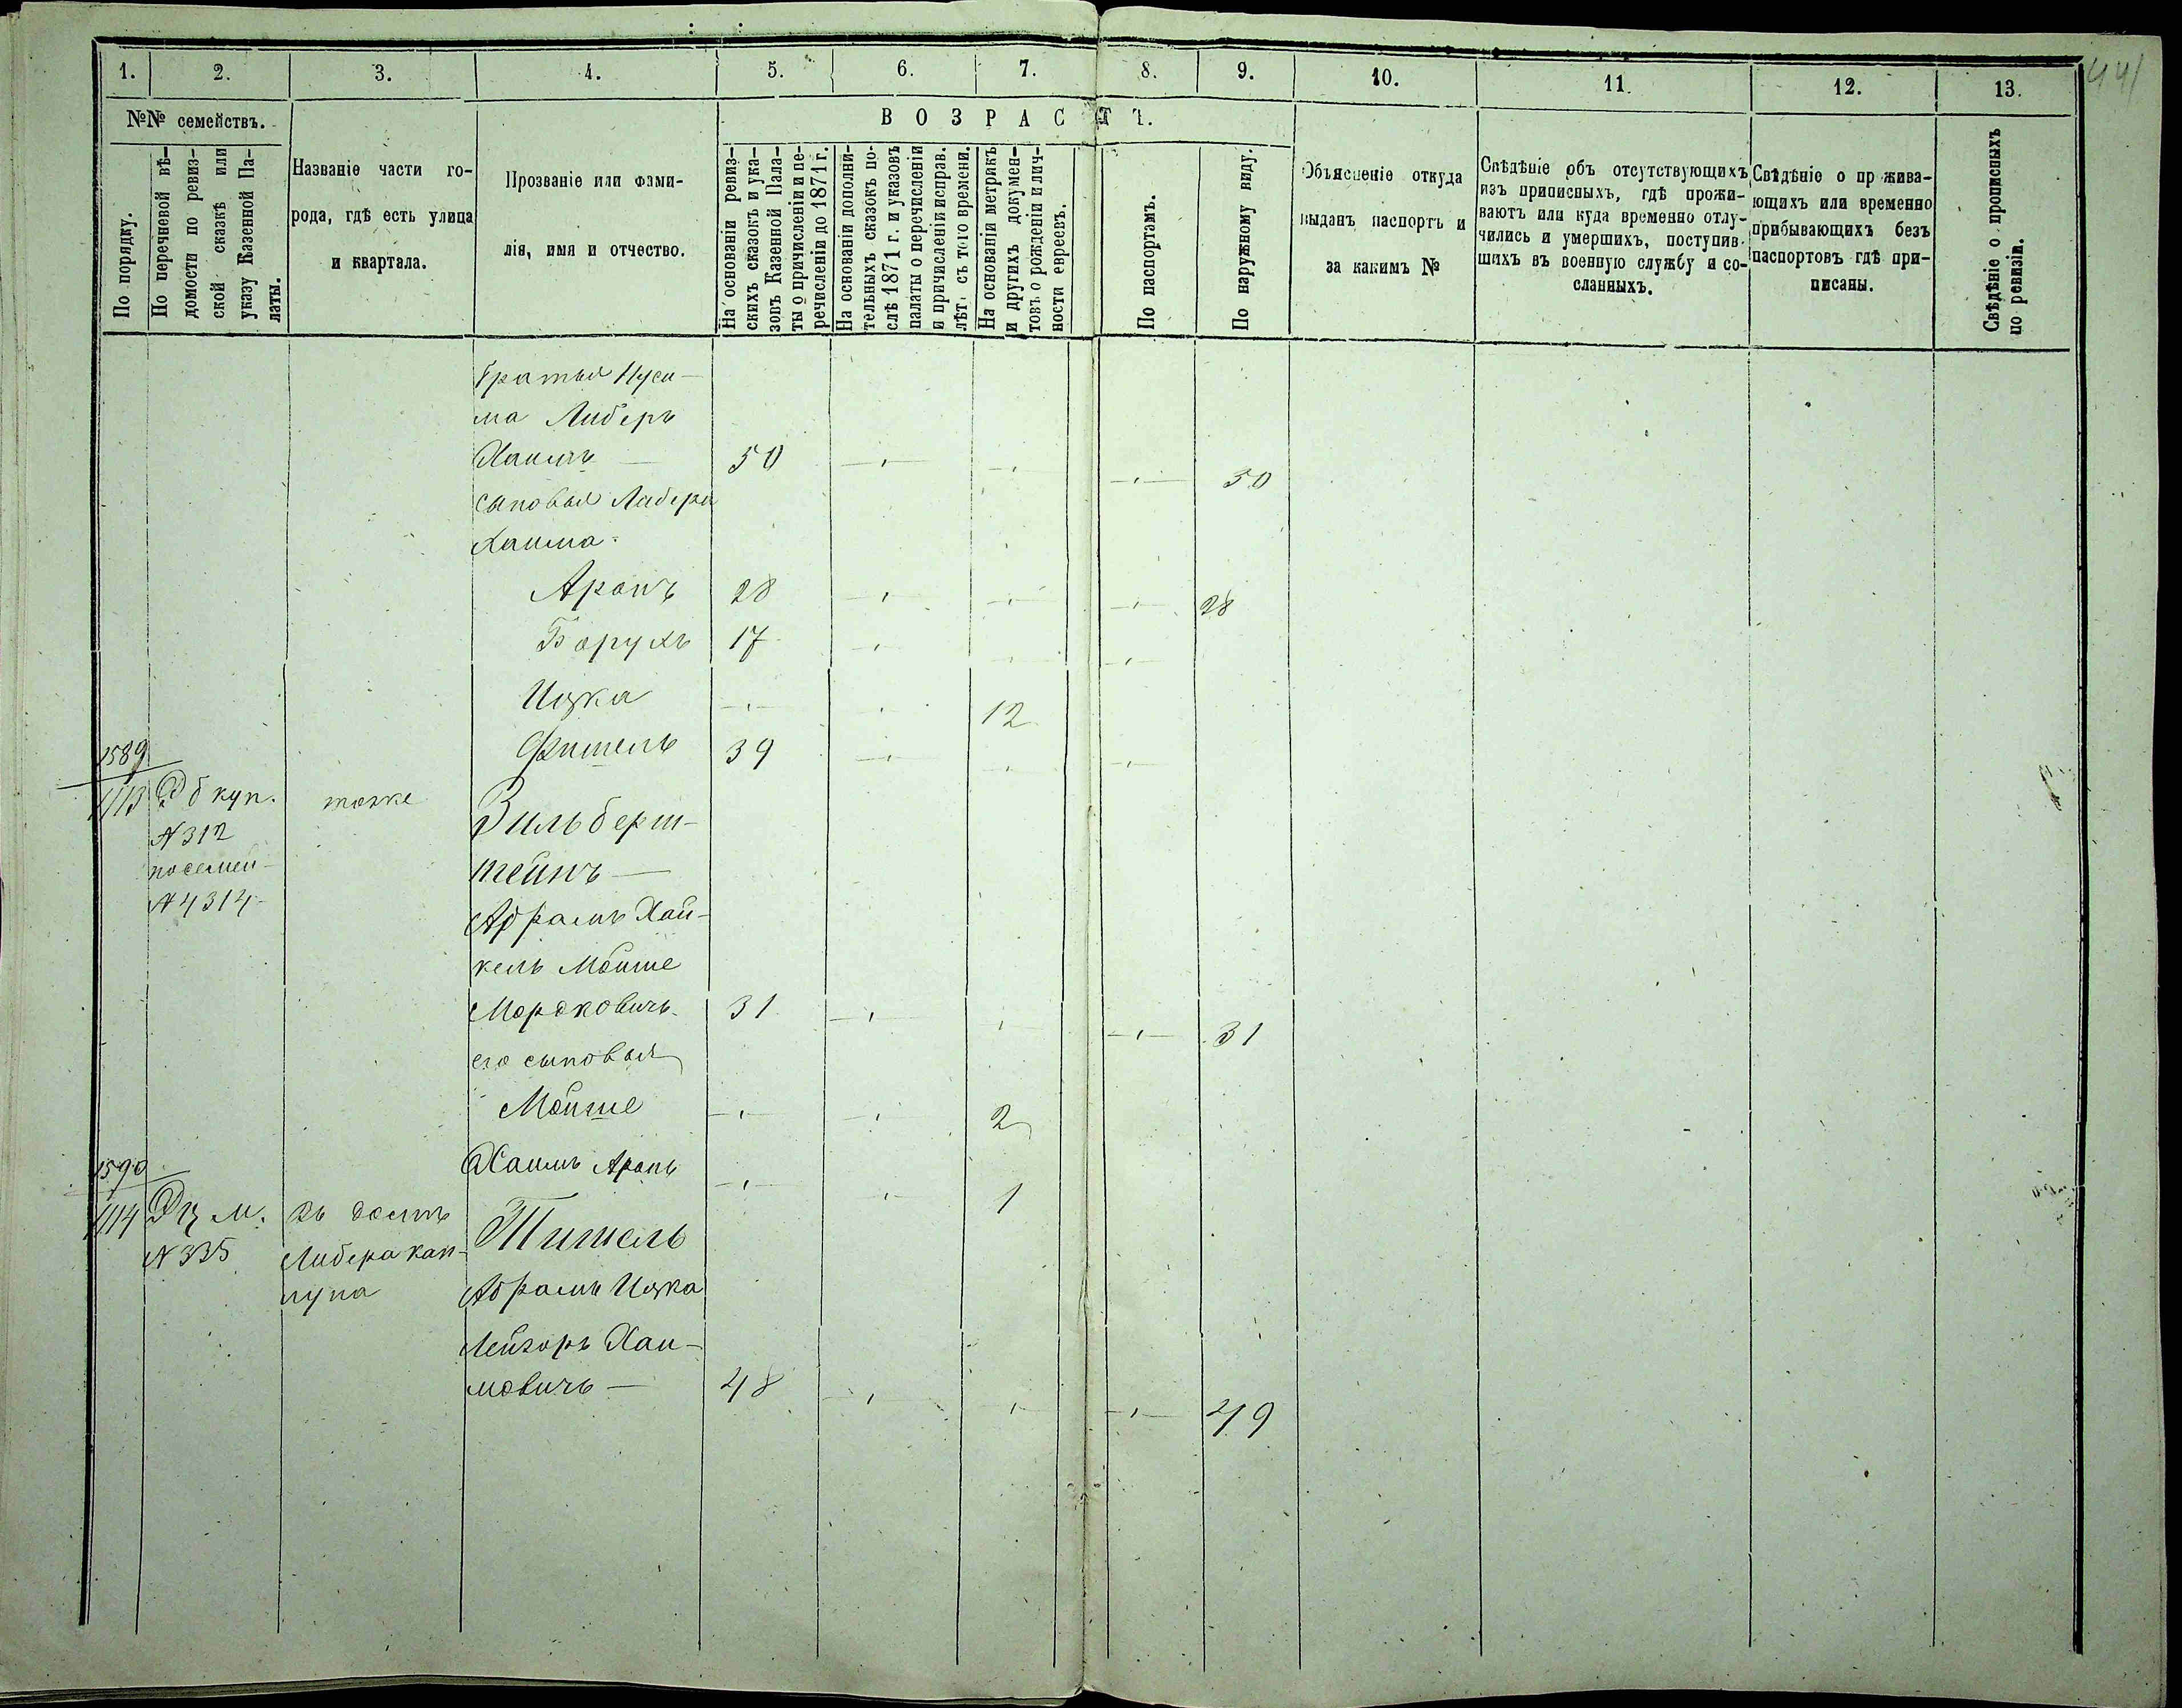 441
1. 2. 3. 4. 5. 6. 7. 8. 9. 10. 11. 12. 13.
№№ семействъ.
По порядку.
По перечневой вѣ-
домости по ревиз-
ской сказкѣ или
указу Казенной Па-
латы.
Названіе части го-
рода, гдѣ есть улица
и квартала.
Прозваніе или фами-
лія, имя и отчество.
ВОЗРАСТЪ.
На основаніи ревиз-
скихъ сказокъ и ука-
зовъ Казенной Пала-
ты о причисленіи и пе-
речисленіи до 1871 г.
На основаніи дополни-
тельныхъ сказокъ по-
слѣ 1871 г. и указовъ
палаты о перечисленіи
и причисленіи исправ.
лѣтъ съ того времени.
На основаніи метрикъ
и другихъ докумен-
товъ о рожденіи и лич-
ности евреевъ.
По паспортамъ.
По наружному виду.
Объясненіе откуда
выданъ паспортъ и
за какимъ №
Свѣдѣніе объ отсутствующихъ
изъ приписныхъ, гдѣ прожи-
ваютъ или куда временно отлу-
чились и умершихъ, поступив-
шихъ въ военную службу и со-
сланныхъ.
Свѣдѣніе о прожива-
ющихъ или временно
прибывающихъ безъ
паспортовъ гдѣ при-
писаны.
Свѣдѣніе о прописныхъ
по ревизіи.
Братья Нуси-
ма Либеръ
Хаимъ — 50 50
сыновья Либера
Хаима.
Аронъ 28 28
Борухъ 17
Ицка 12
Фишель 39
1589
1113 Дб куп. тоже Зильберш-
№ 312
посемей-
№ 4314
тейнъ —
Абрамъ Хай-
кель Мойше
Мордковичъ 31 31
его сыновья
Мойше 2
Хаимъ Аронъ 1
1590
1114 Дц м. въ домѣ Тишель
№ 335 Либера Кап-
луна Абрамъ Ицка
Лейзоръ Хаи-
мовичъ — 48 49